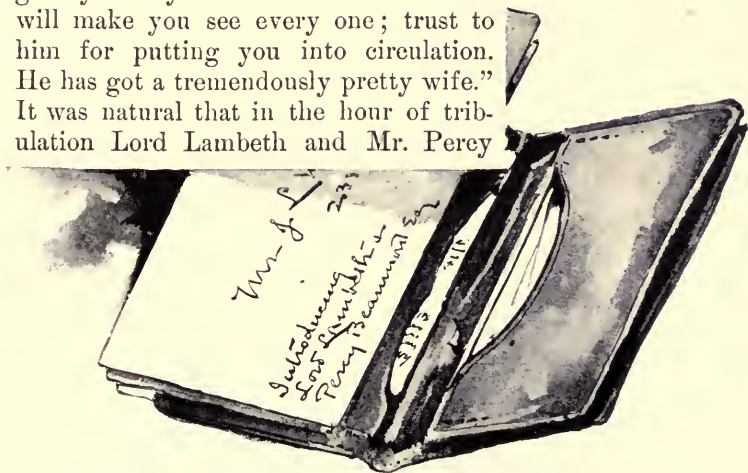 will make you see every one; trust to
him for putting you into circulation.
He has got a tremendously pretty wife."
It was natural that in the hour of trib-
ulation Lord Lambeth and Mr. Percy
Mr J. L
Introducing
Lord Lambeth &
Percy Beaumont Esq